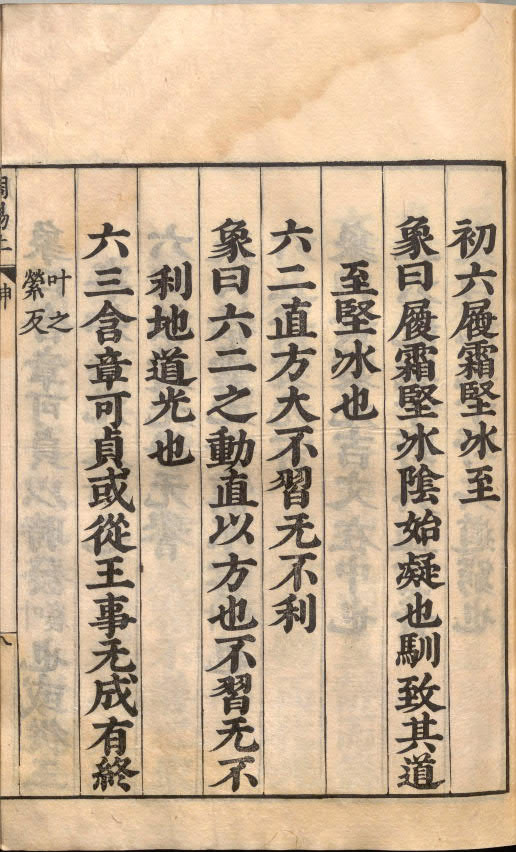 初六履霜堅冰至
象曰履霜堅冰陰始凝也馴致其道
至堅冰也
六二直方大不習无不利
象曰六二之動直以方也不習无不
利地道光也
六三含章可貞或從王事无成有終
叶之
縈反
周易上
坤
八